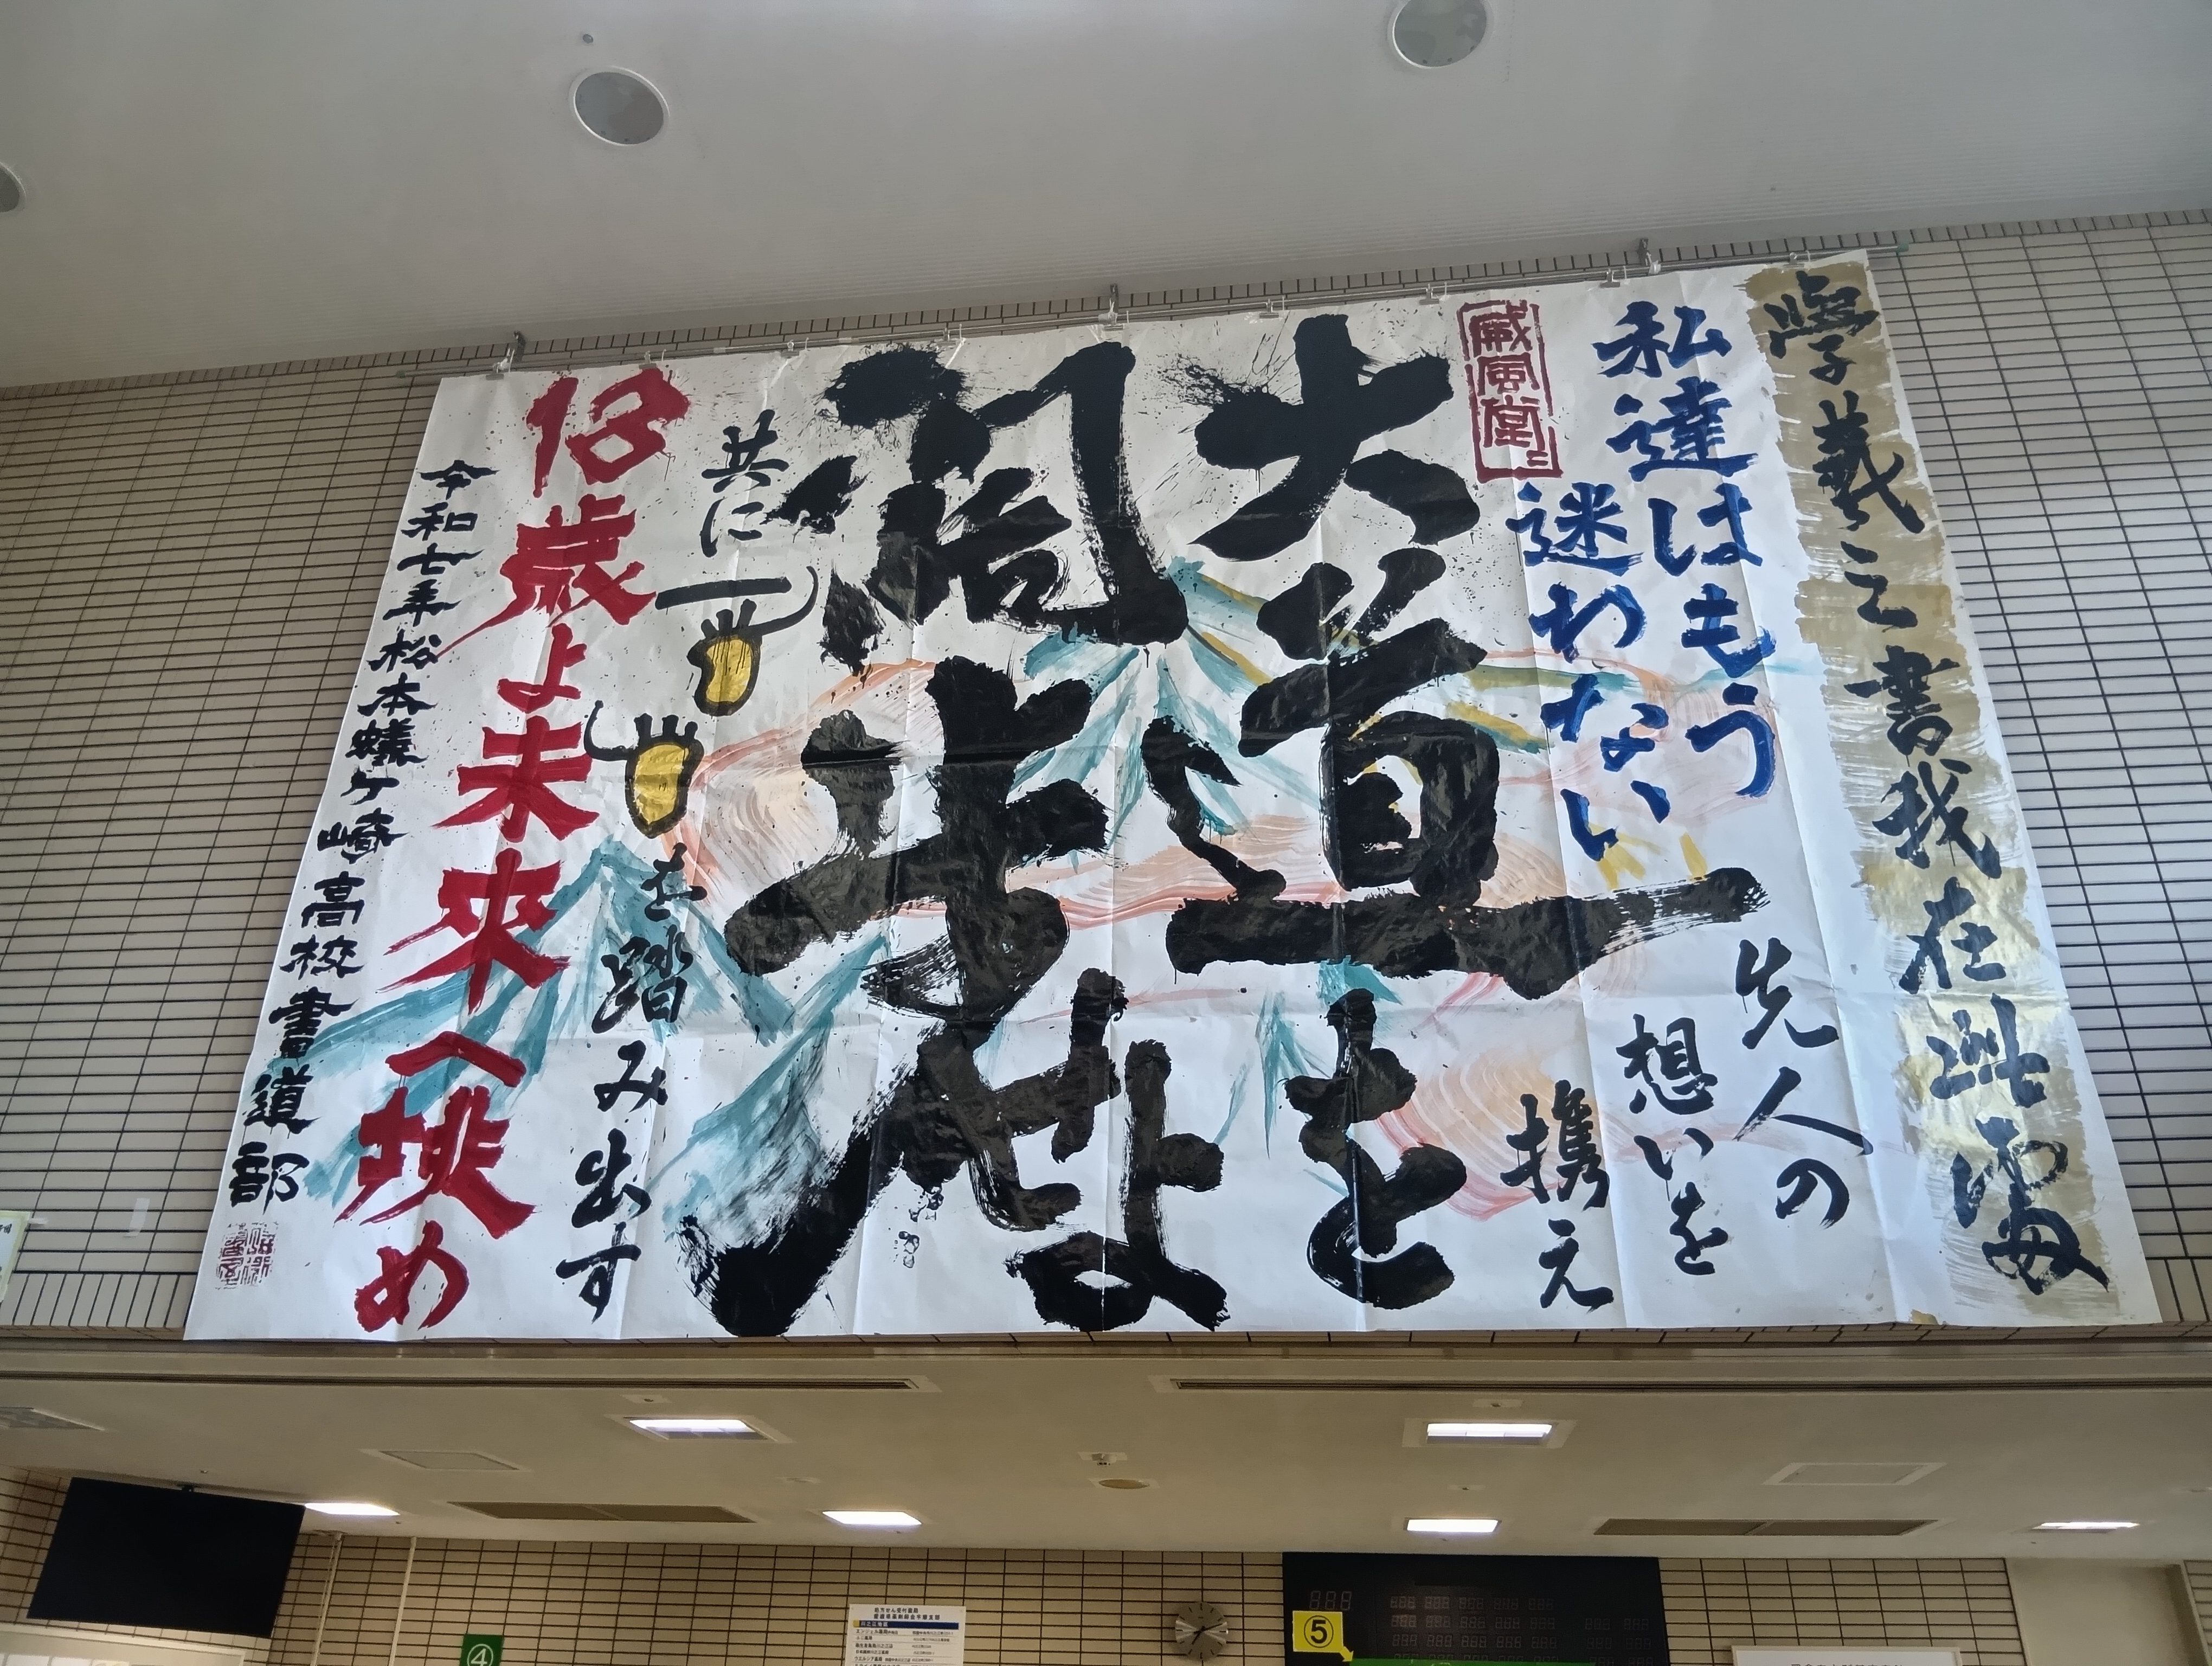 學羲之書我在此處
私達はもう
迷わない
先人の
想いを
携え
威風堂々
大道を
闊歩せよ
共に一
を踏み出す
18歳よ未來へ挑め
令和七年松本蟻ヶ崎高校書道部
④
処方せん受付薬局
⑤